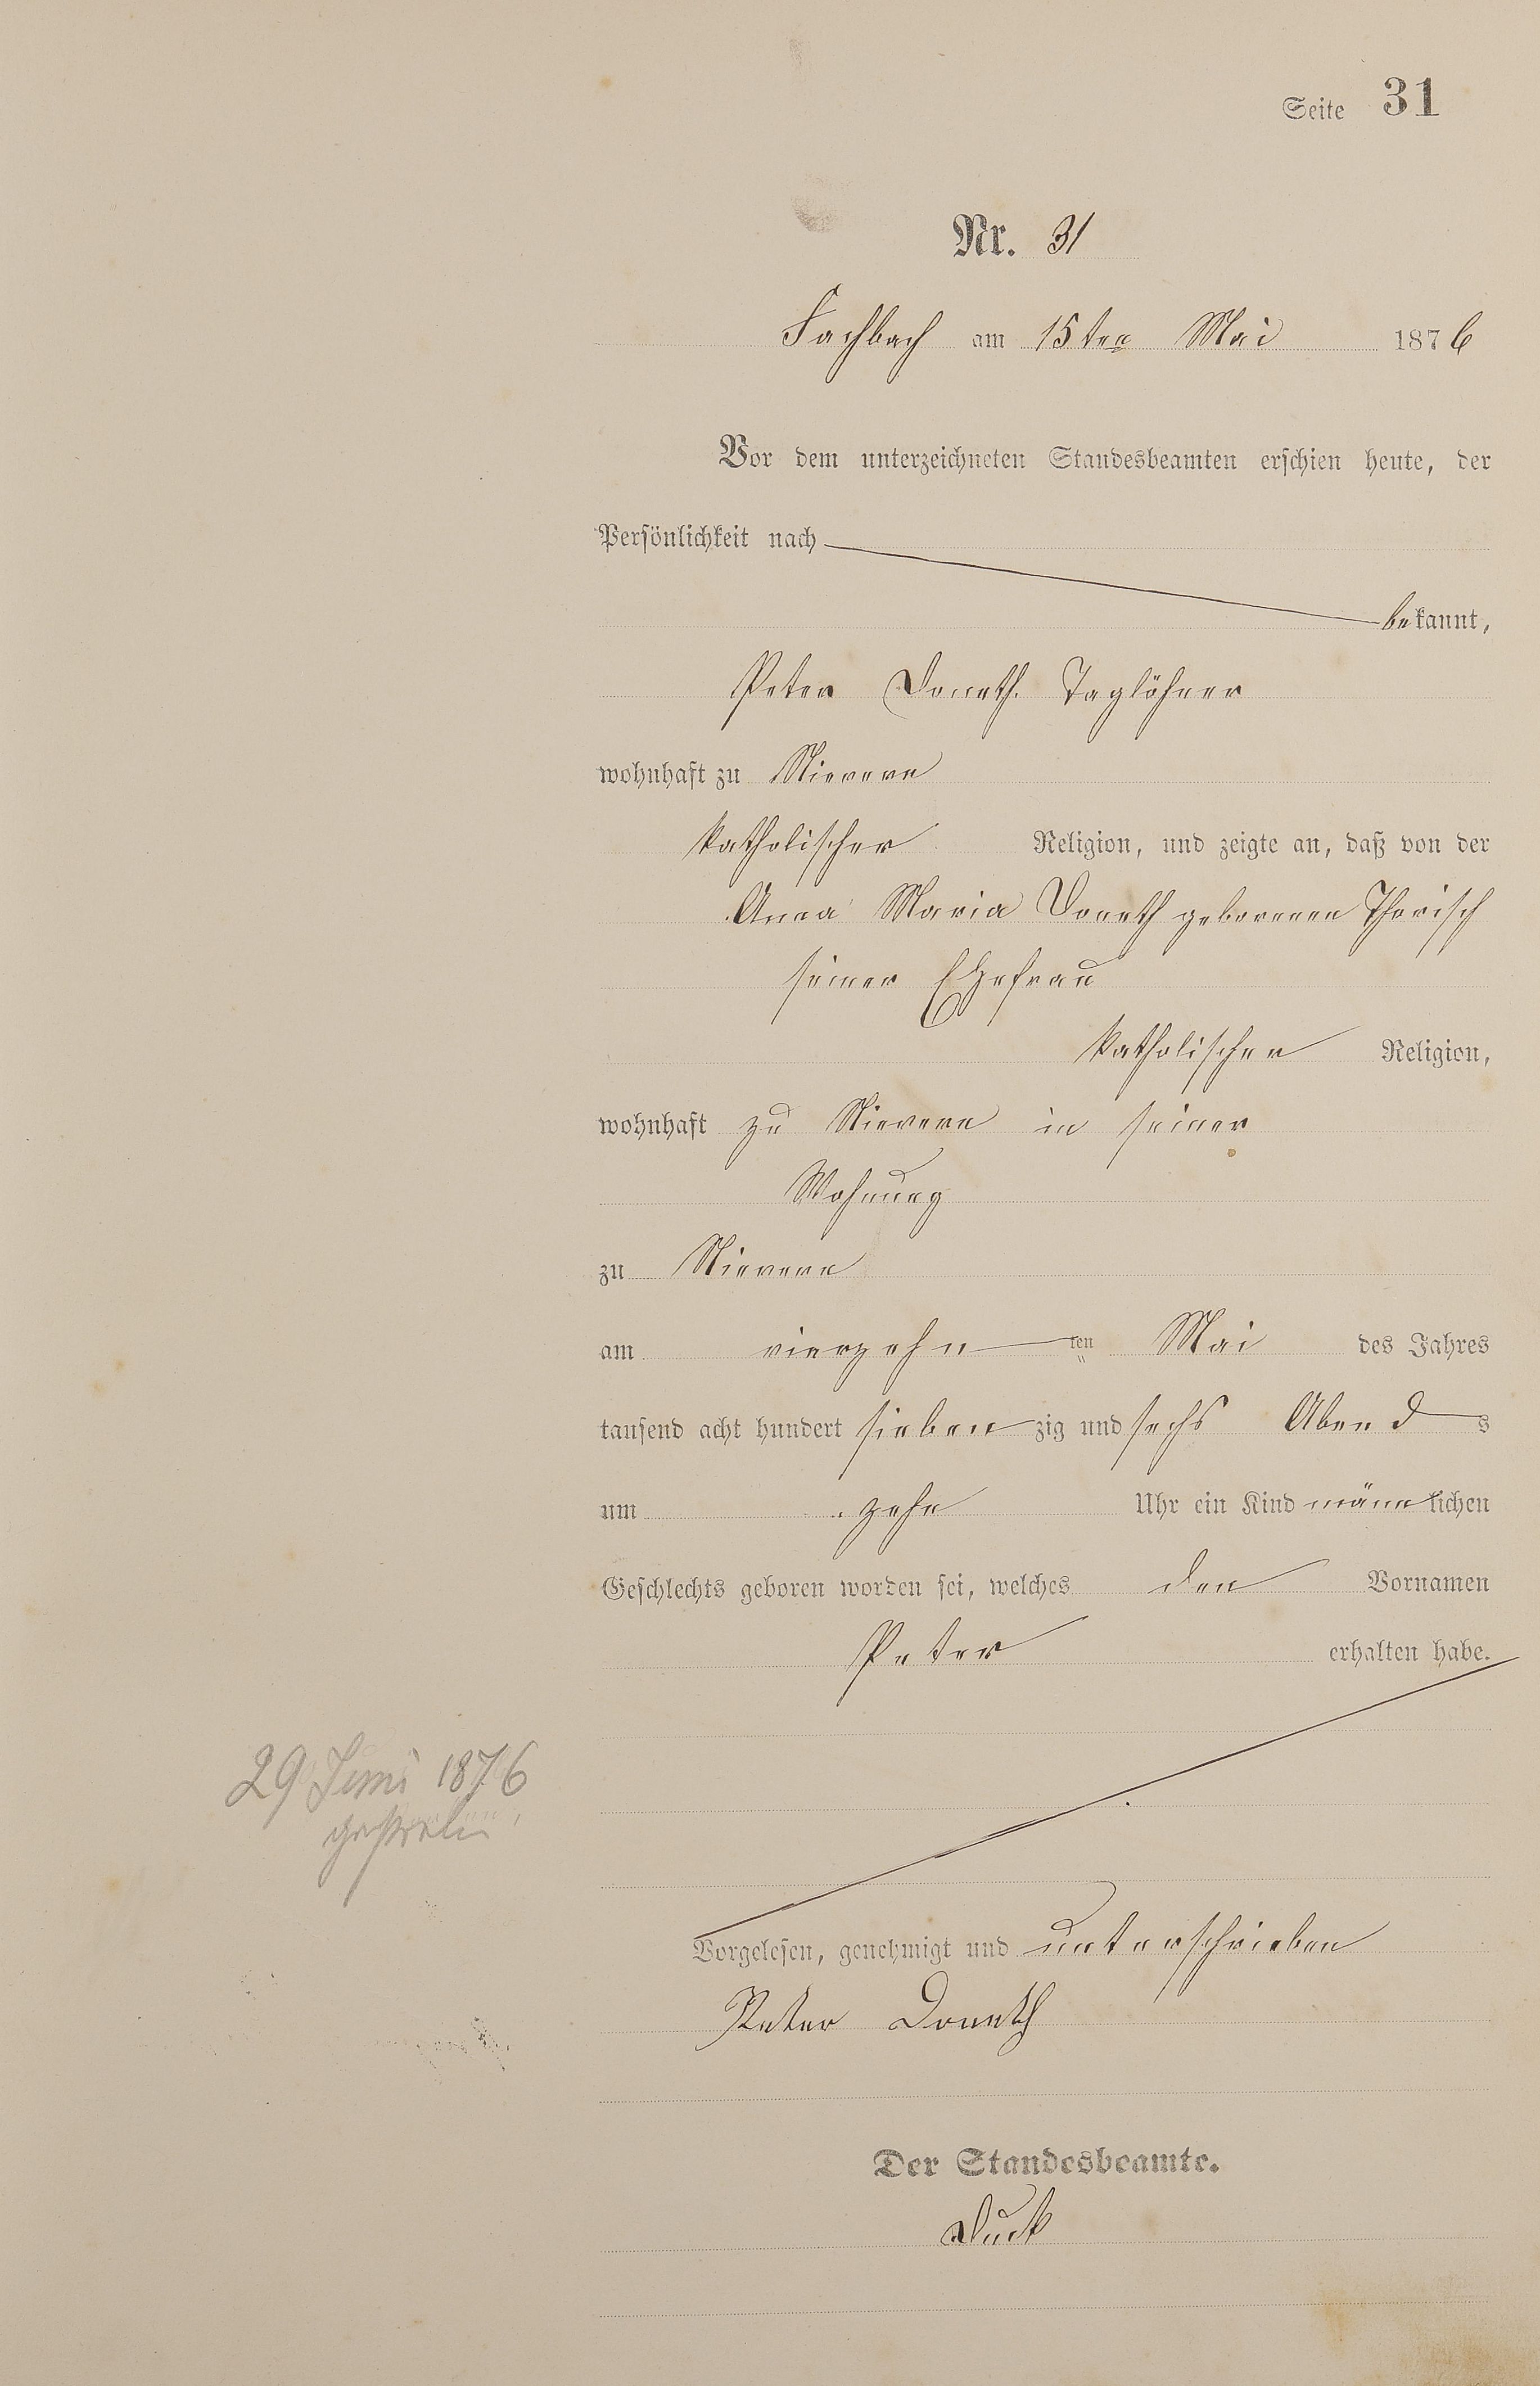 Seite 31
Nr. 31
Fachbach am 15ten Mai 1876
Vor dem unterzeichneten Standesbeamten erschien heute, der
Persönlichkeit nach
bekannt,
Peter Doneth Taglöhner
wohnhaft zu Nievern
katholischer Religion, und zeigte an, daß von der
Anna Maria Doneth geborenen Theisch
seiner Ehefrau
katholischer Religion,
wohnhaft zu Nievern in seiner
Wohnung
zu Nievern
am vierzehnten Mai des Jahres
tausend acht hundert siebenzig und sechs Abends
um zehn Uhr ein Kind männlichen
Geschlechts geboren worden sei, welches den Vornamen
Peter erhalten habe.
29 Juni 1876
Vorgelesen, genehmigt und unterschrieben
Peter Doneth
Der Standesbeamte.
Duck